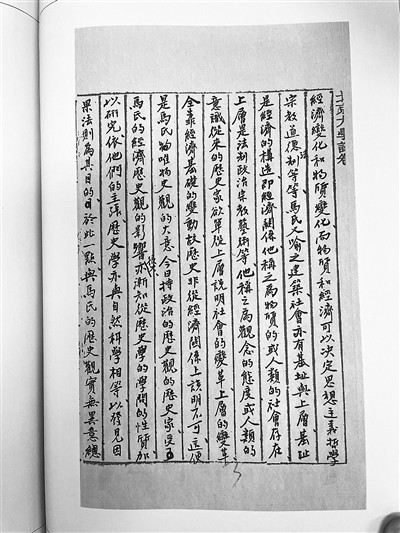 北京大學試卷
經濟變化和物質變化而物質和經濟可以決定思想主義哲學
宗教道德法制等等馬氏又喻之建築社會亦有基址與上層基址
是經濟的構造即經濟關係他稱之為物質的或人類的社會存在
上層是法制政治宗教藝術等他稱之為觀念的態度或人類的
意識從來的歷史家欲單從上層說明社會的變革上層的變革
全靠經濟基礎的變動故歷史非從經濟關係上說明不可這便
是馬氏的唯物史觀的大意今日持政治的歷史觀的歷史家受了
馬氏的經濟歷史觀的影響亦漸知從歷史學的學問的性質加
以研究依他們的主張歷史學亦與自然科學相等以發見因
果法則為其目的於此一點與馬氏的歷史觀實無異意總